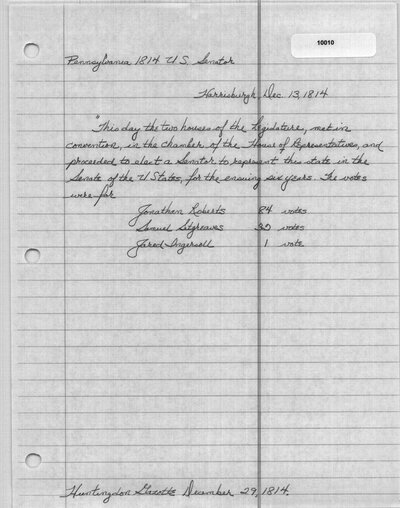 10010
Pennsylvania 1814 U.S. Senator
Harrisburgh, Dec. 13, 1814
"This day the two houses of the Legislature, met in
convention, in the chamber of the House of Representatives, and
proceeded to elect a Senator to represent this state in the
Senate of the U States, for the ensuing six years. The votes
were for
Jonathan Roberts 84 votes
Samuel Sitgreaves votes
Jared Ingersoll 1 vote
Huntingdon Gazette December 29, 1814.